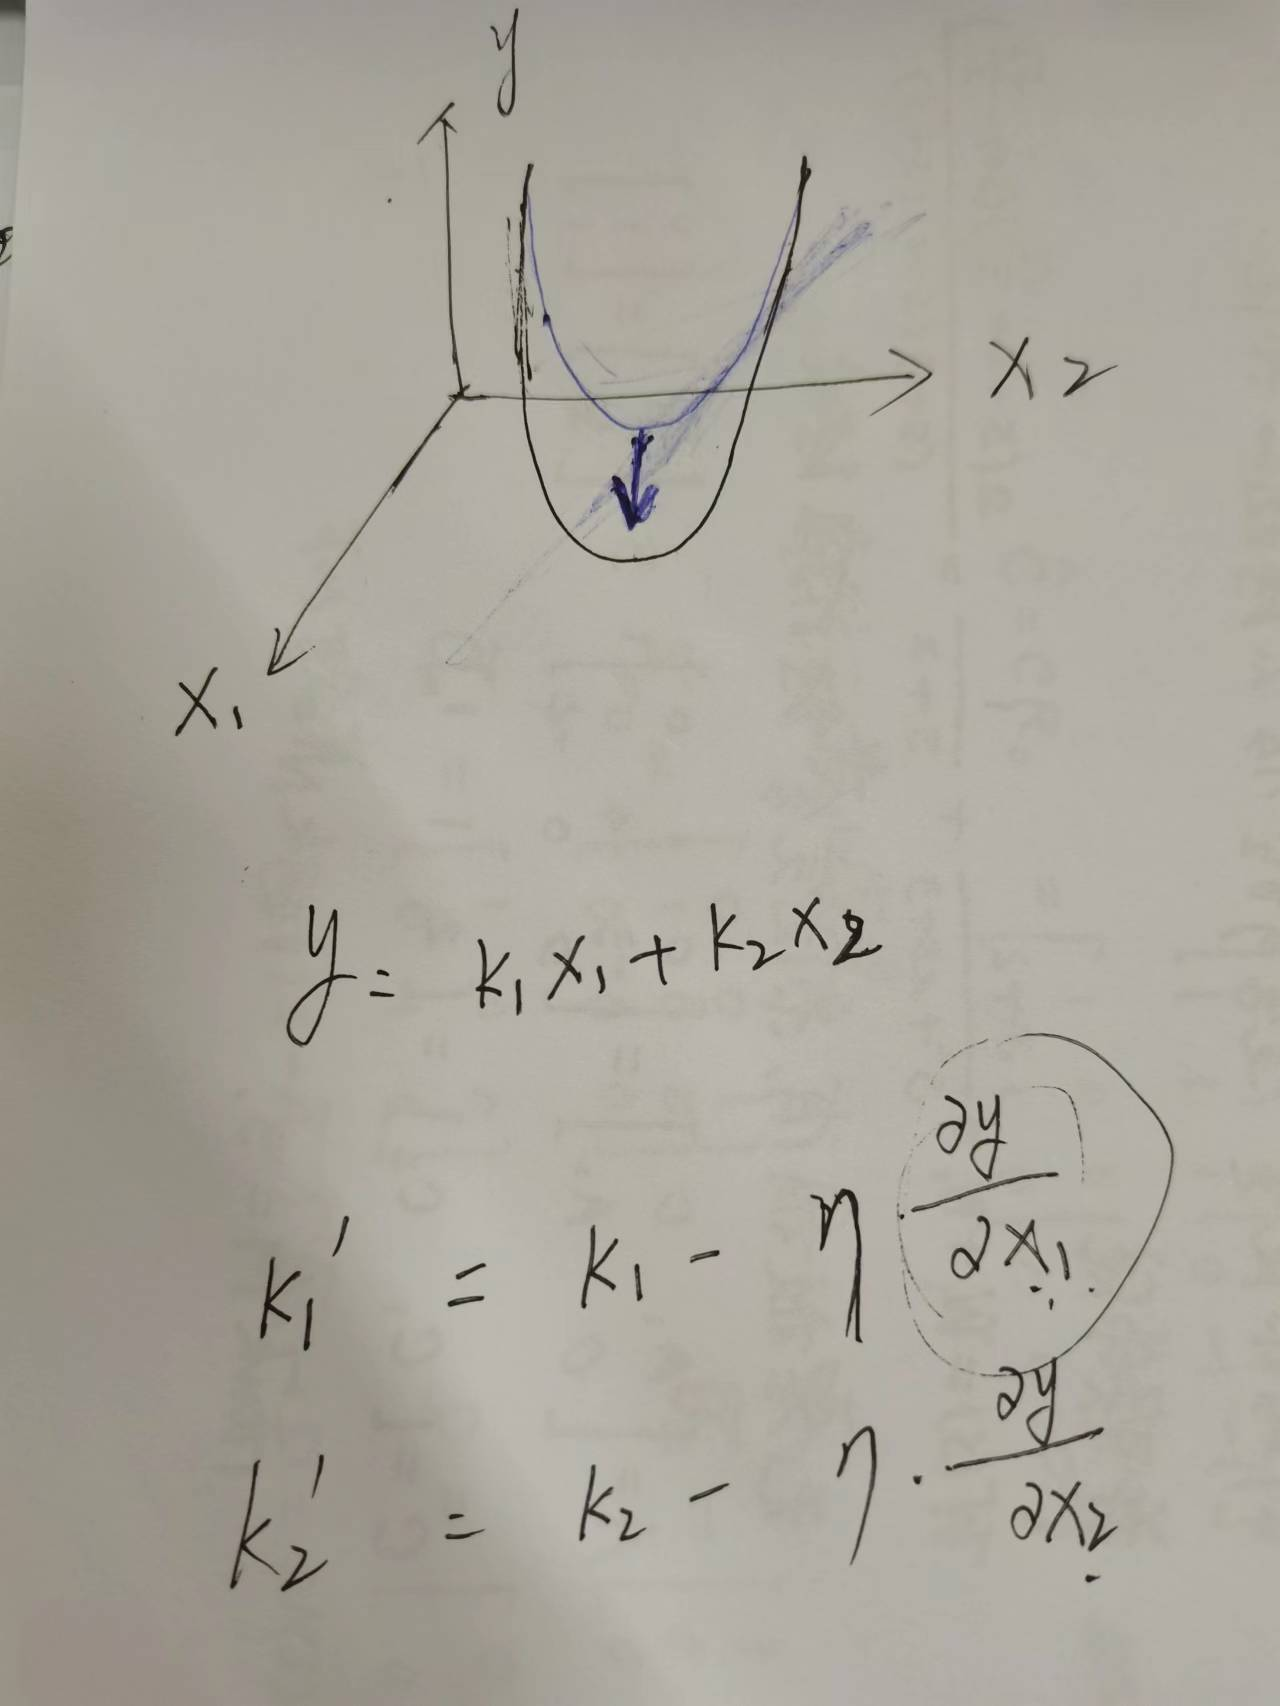 y
x2
x1
y = k1x1 + k2x2
k1' = k1 - η · ∂y/∂x1
k2' = k2 - η · ∂y/∂x2